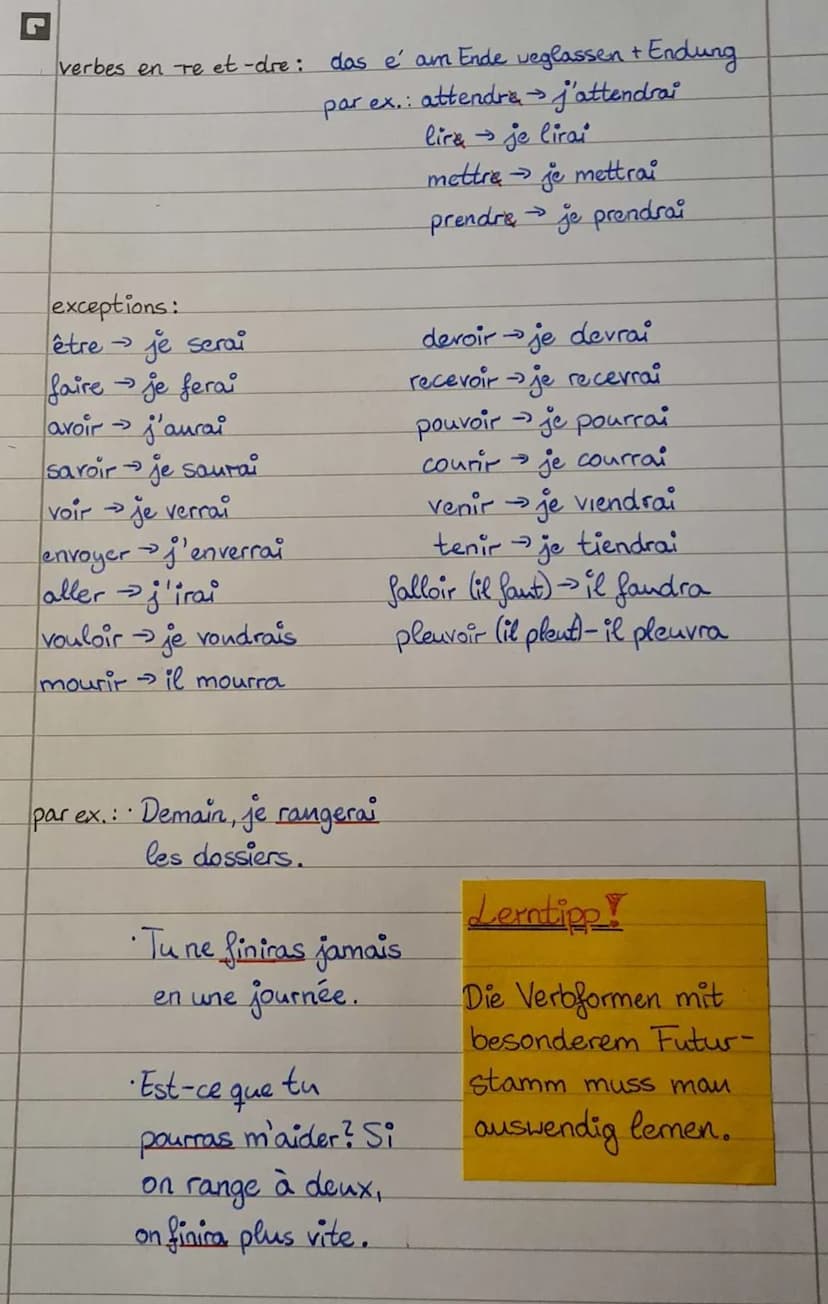 verbes en -re et -dre: das e' am Ende weglassen + Endung
par ex.: attendre → j'attendrai
lire → je lirai
mettre → je mettrai
prendre → je prendrai
exceptions:
être → je serai
faire → je ferai
avoir → j'aurai
savoir → je saurai
voir → je verrai
envoyer → j'enverrai
aller → j'irai
vouloir → je voudrais
mourir → il mourra
devoir → je devrai
recevoir → je recevrai
pouvoir → je pourrai
courir → je courrai
venir → je viendrai
tenir → je tiendrai
falloir (il faut) → il faudra
pleuvoir (il pleut) - il pleuvra
par ex.: · Demain, je rangerai
les dossiers.
· Tu ne finiras jamais
en une journée.
· Est-ce que tu
pourras m'aider? Si
on range à deux,
on finira plus vite.
Lerntipp!
Die Verbformen mit
besonderem Futur-
stamm muss man
auswendig lernen.